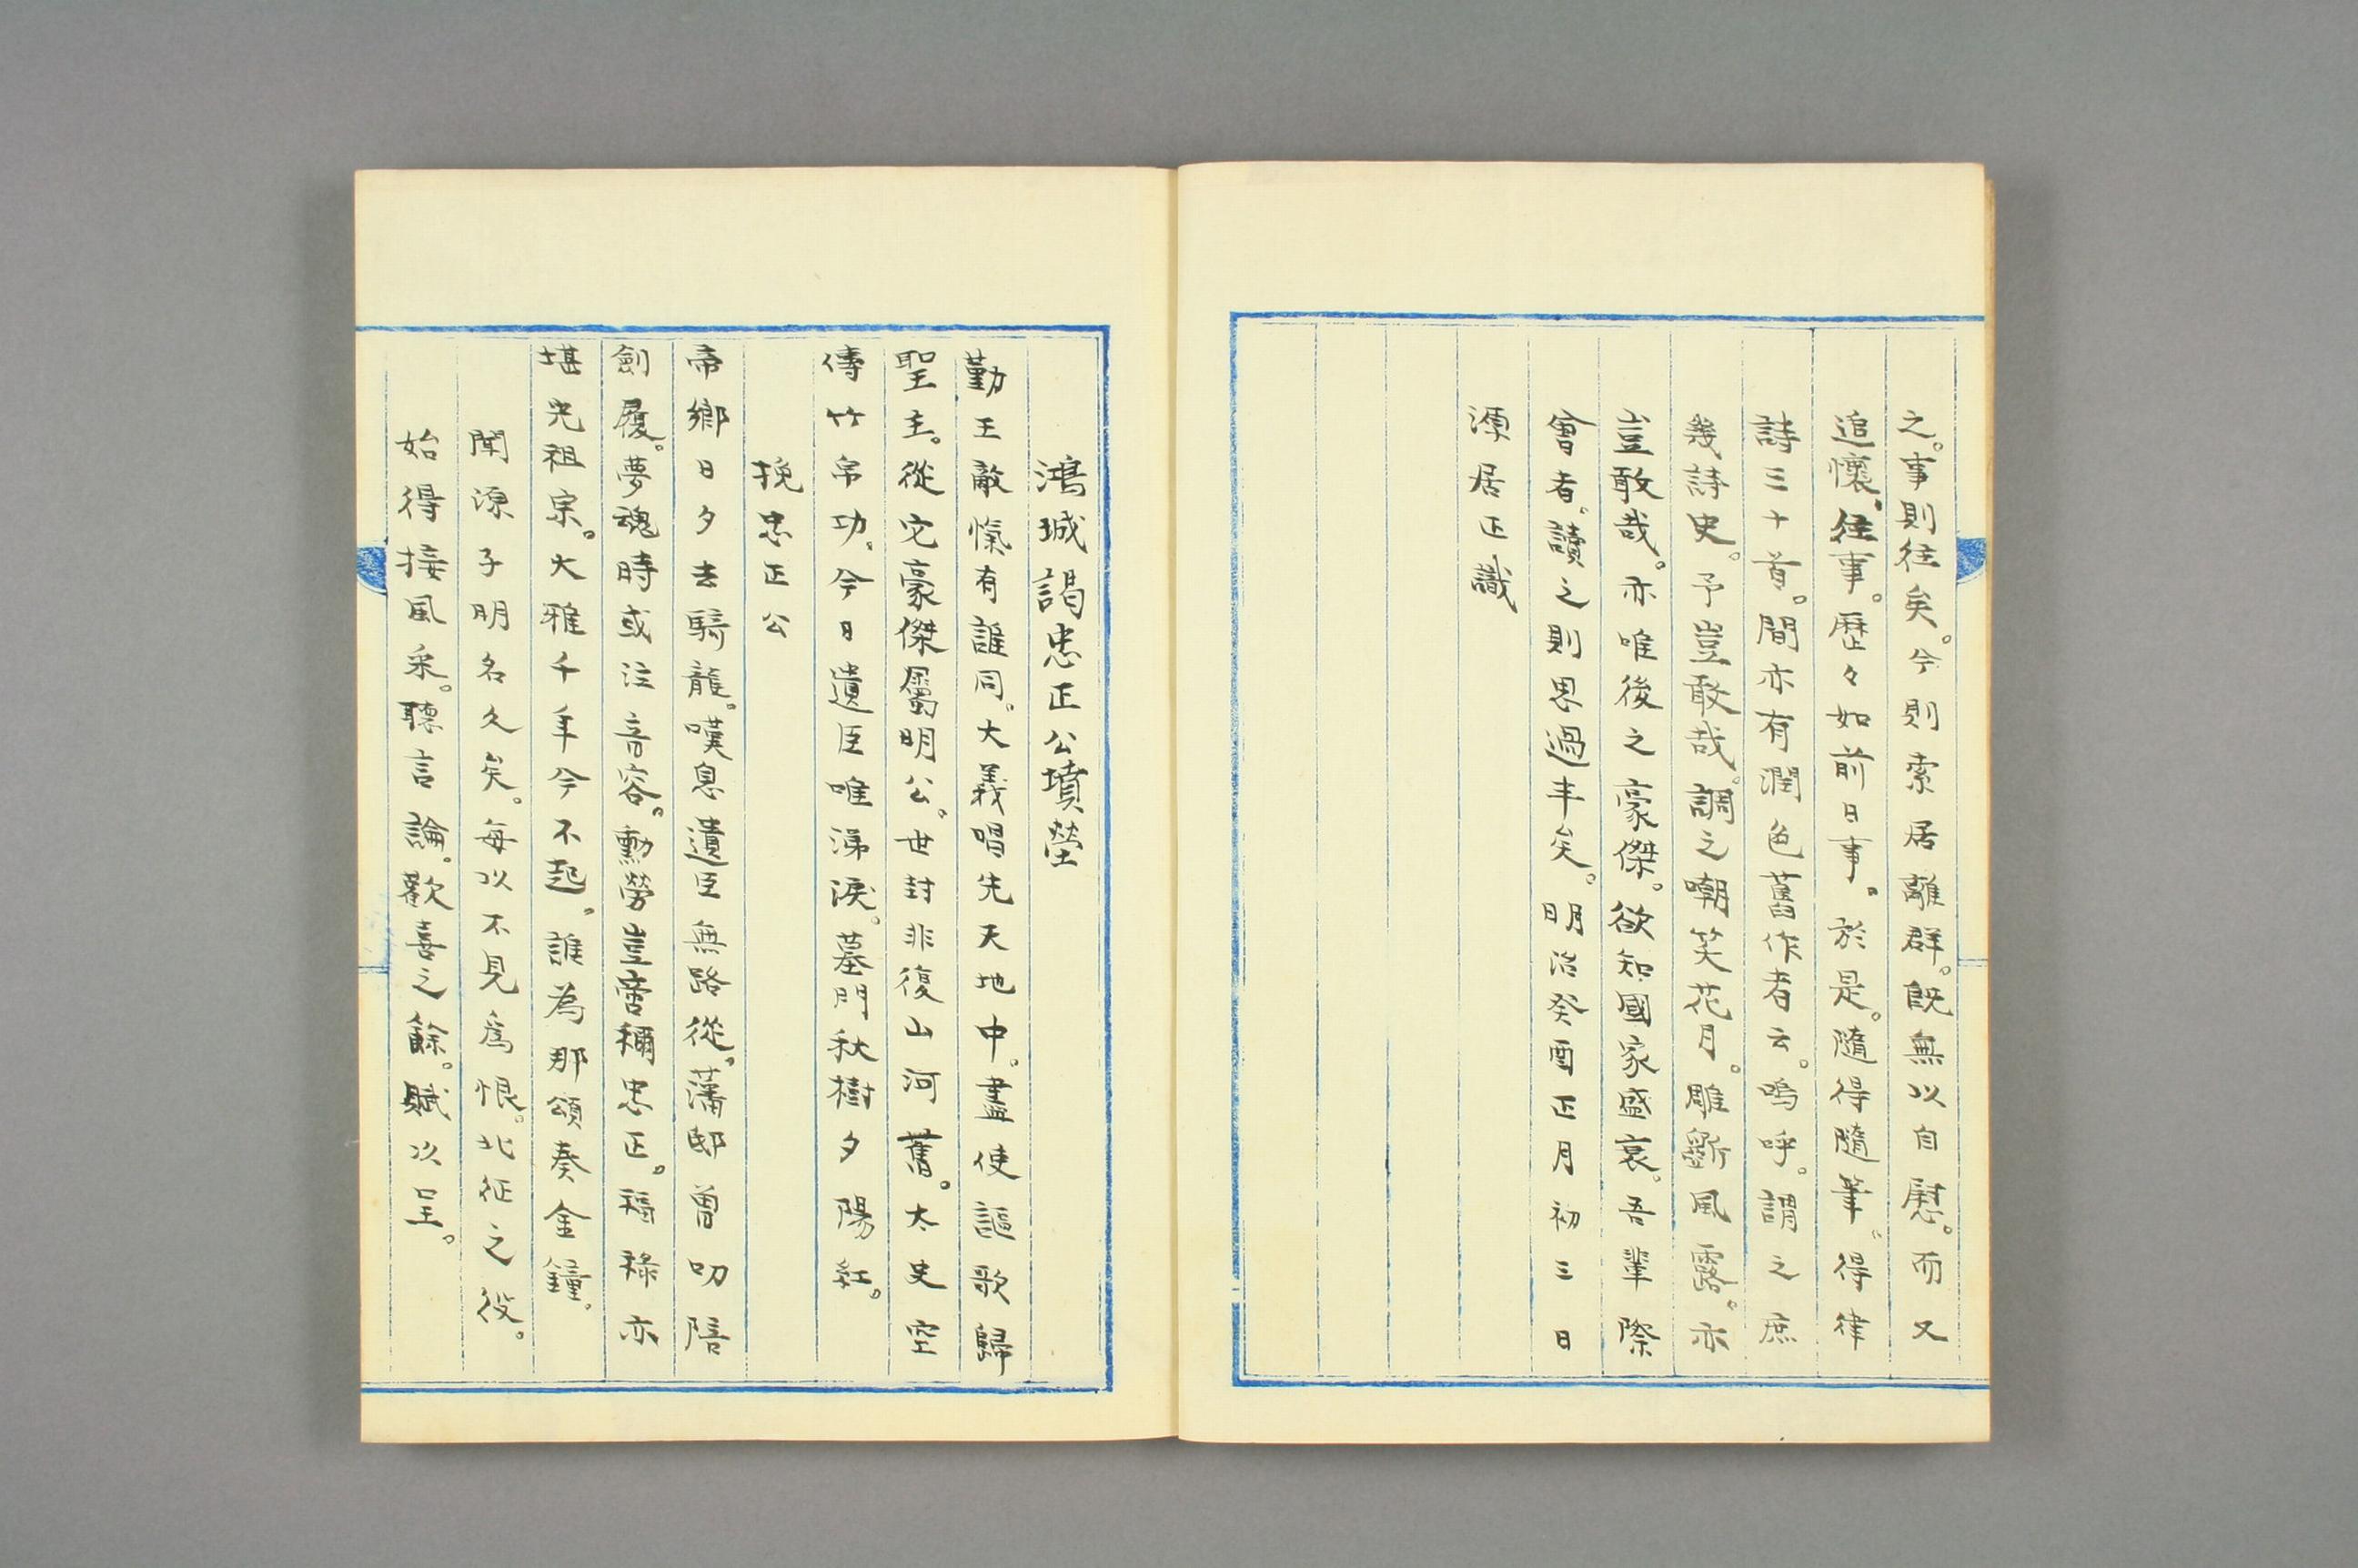 之。事則往矣。今則索居離群。既無以自慰。而又
追懷往事。歴々如前日事。於是。隨得隨筆。得律
詩三十首。間亦有潤色舊作者云。嗚呼。謂之庶
幾詩史。予豈敢哉。調之嘲笑花月。雕斵風露。亦
豈敢哉。亦唯後之豪傑。欲知國家盛衰。吾輩際
會者。讀之則思過半矣。明治癸酉正月初三日
源居正識
鴻城謁忠正公墳塋
勤王敵愾有誰同。大義唱先天地中。盡使謳歌歸
聖主。從它豪傑屬明公。世封非復山河舊。太史空
傳竹帛功。今日遺臣唯涕淚。墓門秋樹夕陽紅。
挽忠正公
帝鄉日夕去騎龍。嘆息遺臣無路從。藩邸曾叨陪
劍履。夢魂時或注音容。勳勞豈啻稱忠正。福祿亦
堪光祖宗。大雅千年今不起。誰為那頌奏金鐘。
聞源子明名久矣。每以不見爲恨。北征之役。
始得接風采。聽言論。歡喜之餘。賦以呈。